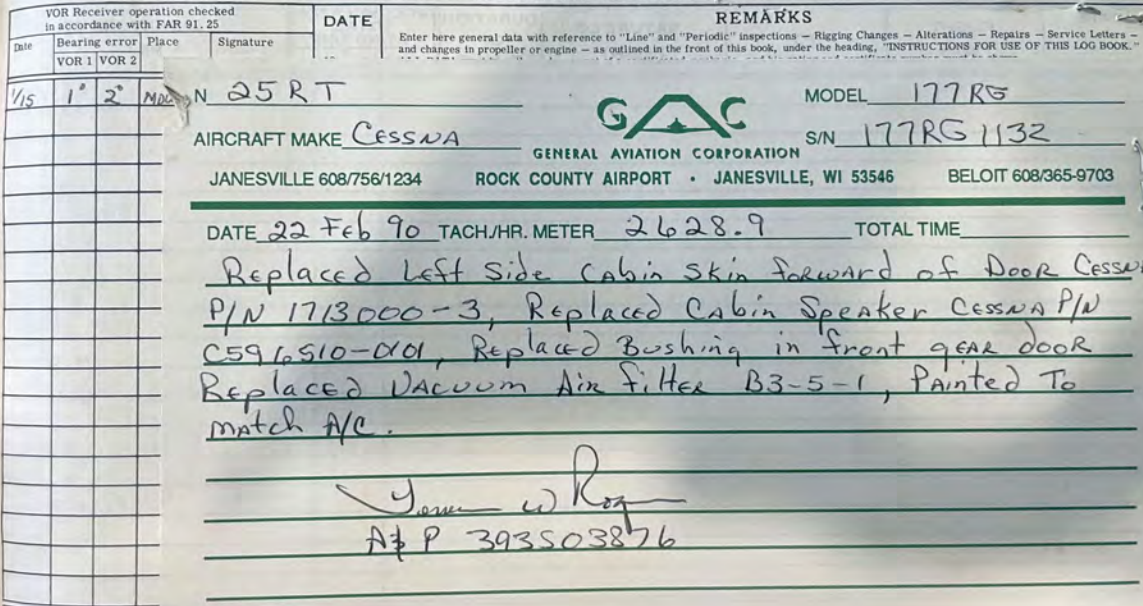 VOR Receiver operation checked
in accordance with FAR 91.25
Date Bearing error Place Signature
VOR 1 VOR 2
1/15 1° 2°
DATE
REMARKS
Enter here general data with reference to "Line" and "Periodic" inspections — Rigging Changes — Alterations — Repairs — Service Letters —
and changes in propeller or engine — as outlined in the front of this book, under the heading, "INSTRUCTIONS FOR USE OF THIS LOG BOOK."
N 25RT
GAC
MODEL 177RG
AIRCRAFT MAKE CESSNA
S/N 177RG1132
GENERAL AVIATION CORPORATION
JANESVILLE 608/756/1234 ROCK COUNTY AIRPORT · JANESVILLE, WI 53546 BELOIT 608/365-9703
DATE 22 Feb 90 TACH./HR. METER 2628.9 TOTAL TIME
Replaced Left Side Cabin Skin forward of Door Cessna
P/N 1713000-3, Replaced Cabin Speaker Cessna P/N
C596510-0101, Replaced Bushing in front gear door
Replaced Vacuum Air filter B3-5-1, Painted To
match A/C.
A&P 393503876